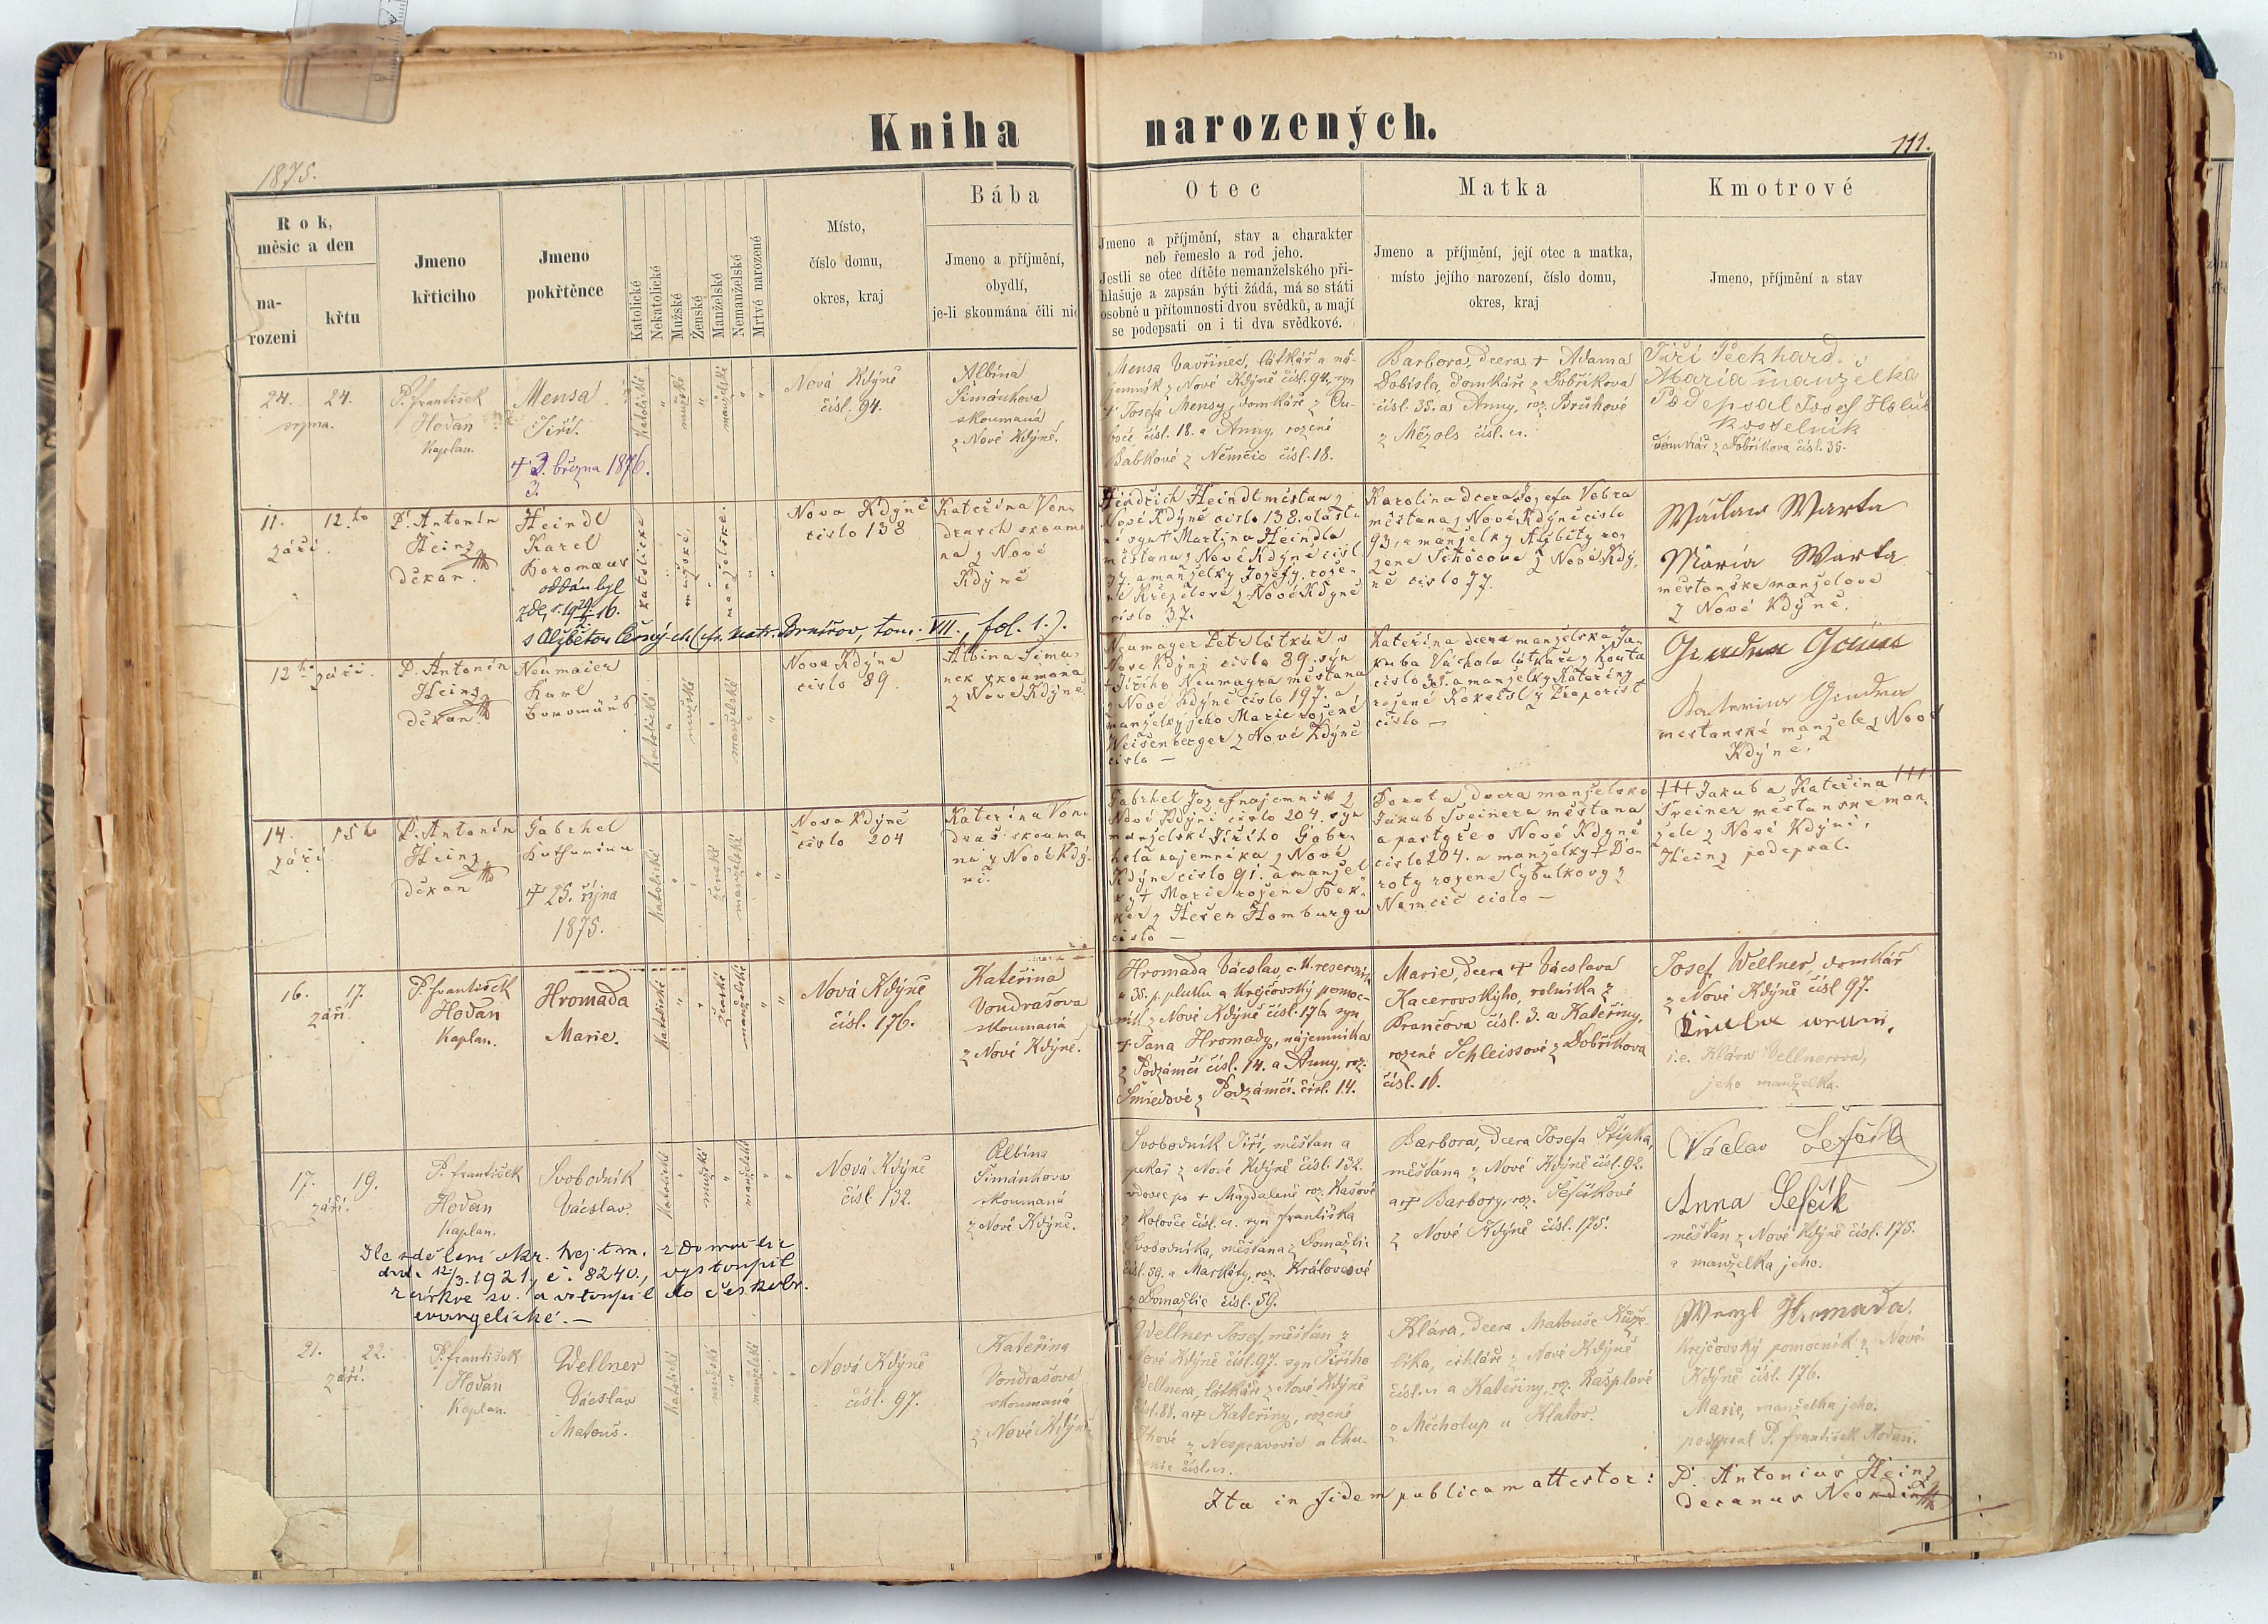 Kniha narozených.
111.
1875.
Rok,
měsíc a den
na-
rozeni
křtu
Jmeno
křticího
Jmeno
pokřtěnce
Katolické
Nekatolické
Mužské
Ženské
Manželské
Nemanželské
Mrtvé narozené
Místo,
číslo domu,
okres, kraj
Bába
Jmeno a příjmění,
obydlí,
je-li skoumána čili nic
Otec
Jmeno a příjmění, stav a charakter
neb řemeslo a rod jeho.
Jestli se otec dítěte nemanželského při-
hlašuje a zapsán býti žádá, má se státi
osobně u přítomnosti dvou svědků, a mají
se podepsati on i ti dva svědkové.
Matka
Jmeno a příjmění, její otec a matka,
místo jejího narození, číslo domu,
okres, kraj
Kmotrové
Jmeno, příjmění a stav
24. 24.
srpna.
P. František
Hodan
Kaplan.
Mensa
Jiří.
+ 3. března 1876.
3.
Katolické
mužské
manželské
Nová Kdýně
čísl. 94.
Albína
Šimánkova
skoumaná
z Nové Kdýně.
Mensa Vavřinec, látkář a ná-
jemník z Nové Kdýně čísl. 94, syn
+ Josefa Mensy, domkáře z Ou-
boče čísl. 18. a Anny, rozené
Babkové z Němčic čísl. 18.
Barbora, dcera + Adama
Dobisla, domkáře z Dobříkova
čísl. 35. a Anny, roz.
z čísl. n.
Jiří Peckhard.
Maria manželka
Podepsal Josef
Kostelník
domkář z Dobříkova čísl. 35.
11. 12.ho
září
P. Antonín
Heinz
děkan.
Heindl
Karel
Boromaeus
oddán byl
s Alžbětou tom. VII., fol. 1.).
katolické
mužské,
manželské.
Nova Kdýně
cislo 138
Kateřina Von-
drasch skouma-
na z Nové
Kdýně
Jindřich Heindl měštan z
Nové Kdýně cislo 138. vlastt-
ni syn + Martina Heindla
měštana z Nové Kdýně čisl
37 a manželky Jozefy, roze-
né z Nové Kdýně
cislo 37.
Karolina dcera Jozefa Vebra
měštana z Nové Kdýně cislo
93, a manželky Alžběty roz
zene z Nové Kdý,
ně cislo 77.
Wáclaw Warta
Maria Warta
měštanske manželové
z Nové Kdýně.
12.ho září.
P. Antonín
Heinz
děkan.
Neumaier
Karl
Katolické
mužské
manželské
Nova Kdýně
cislo 89
Albina Sima-
nek skoumaná
z Nové Kdýně
Neumayer Petr látkář v
Nové Kdýni cislo 89. syn
+ Jiřího Neumayra měštana
z Nové Kdýně cislo 197. a
manželky jeho Marie rozené
Weisenberger z Nové Kdýně
cislo —
Kateřina dcera manželska Ja-
kuba Váchala látkáře z Kouta
cislo 35. a manželky Kateřiny
rozené
cislo —
měštanské manžele z Nové
Kdýně.
14. 15.ho
září
P. Antonín
Heinz
děkan
Gabrhel
Katharina
+ 25. října
1875.
Katolické
ženské
manželské
Nova Kdýně
cislo 204
Kateřina Von-
draš skouma-
ná z Nové Kdý-
ně.
Gabrhel Jozef najemnik z
Nové Kdýni cislo 204. syn
manželski Jiřího Gabr-
hela najemníka z Nové
Kdýne cislo 91. a manžel
ky + Marie rozene Bek-
ker z Hesen Homburgu
cislo —
Dorota dcera manželska
Jakub Šteinera měštana
a pastyře v Nové Kdyně
cislo 204. a manželky + Do-
roty rozene Cybulkovy z
Němčic cislo —
+++ Jakub a Kateřina +++
Šteiner měštanske man-
žele z Nové Kdýni.
Heinz podepsal.
16. 17.
září.
P. František
Hodan
Kaplan.
Hromada
Marie.
Katolické
ženské
manželské
Nová Kdýně
čísl. 176.
Kateřina
Vondrašova
skoumaná
z Nové Kdýně.
Hromada Václav, c. k. reservník
u 35. p. pluku a krejčovský pomoc-
ník z Nové Kdýně čísl. 176, syn
+ Jana Hromady, nájemníka
z Podzámčí čísl. 14. a Anny, roz.
Šmiedové z Podzámčí čísl. 14.
Marie, dcera + Vácslava
Kacerovského, rolníka z
Prančova čísl. 3. a Kateřiny,
rozené Schleissové z Dobříkova
čísl. 16.
Josef Wellner, domkář
z Nové Kdýně čísl 97.
i. e. Klára Vellnerova,
jeho manželka.
17. 19.
září.
P. František
Hodan
Kaplan.
Svobodník
Vácslav.
Dle sdělení okr. hejtm. z Domažlic
dne 12/3. 1921, č. 8240., vystoupil
z církve sv. a vstoupil do českobr.
evangelické. —
Katolické
mužské
manželské
Nová Kdýně
čísl. 132.
Albína
Šimánkova
skoumaná
z Nové Kdýně.
Svobodník Jiří, měštan a
pekař z Nové Kdýně čísl. 132.
vdovec po + Magdaleně roz. Kašové
z Kolovče čísl. n. syn Františka
Svobodníka, měštana z Domažlic
čísl. 59. a Markéty, roz. Královcové
z Domažlic čísl. 59.
Barbora, dcera Josefa Štípka,
měštana z Nové Kdýně čísl. 92.
a + Barbory, roz. Šefčíkové
z Nové Kdýně čísl. 175.
Václav Šefčík
Anna Šefčík
měštan z Nové Kdýně čísl. 175.
a manželka jeho.
21. 22.
září.
P. František
Hodan
Kaplan.
Wellner
Vácslav
Matouš.
Katolické
mužské
manželské
Nová Kdýně
čísl. 97.
Kateřina
Vondrašova
skoumaná
z Nové Kdýně
Wellner Josef, měštan z
Nové Kdýně čísl. 97. syn Jiřího
Wellnera, látkáře z Nové Kdýně
čísl. 81. a + Kateřiny, rozené
z Nespravovic u Chu-
denic čísl. n.
Klára, dcera Matouše Kuže-
líka, cihláře z Nové Kdýně
čísl. n a Kateřiny, roz. Kašplové
z Měcholup u Klatov.
Wenzl Hromada.
krejčovský pomocník z Nové
Kdýně čísl. 176.
Marie, manželka jeho.
podepsal P. František Hodan.
Ita in fidem publicam attestor:
P. Antonius Heinz
decanus